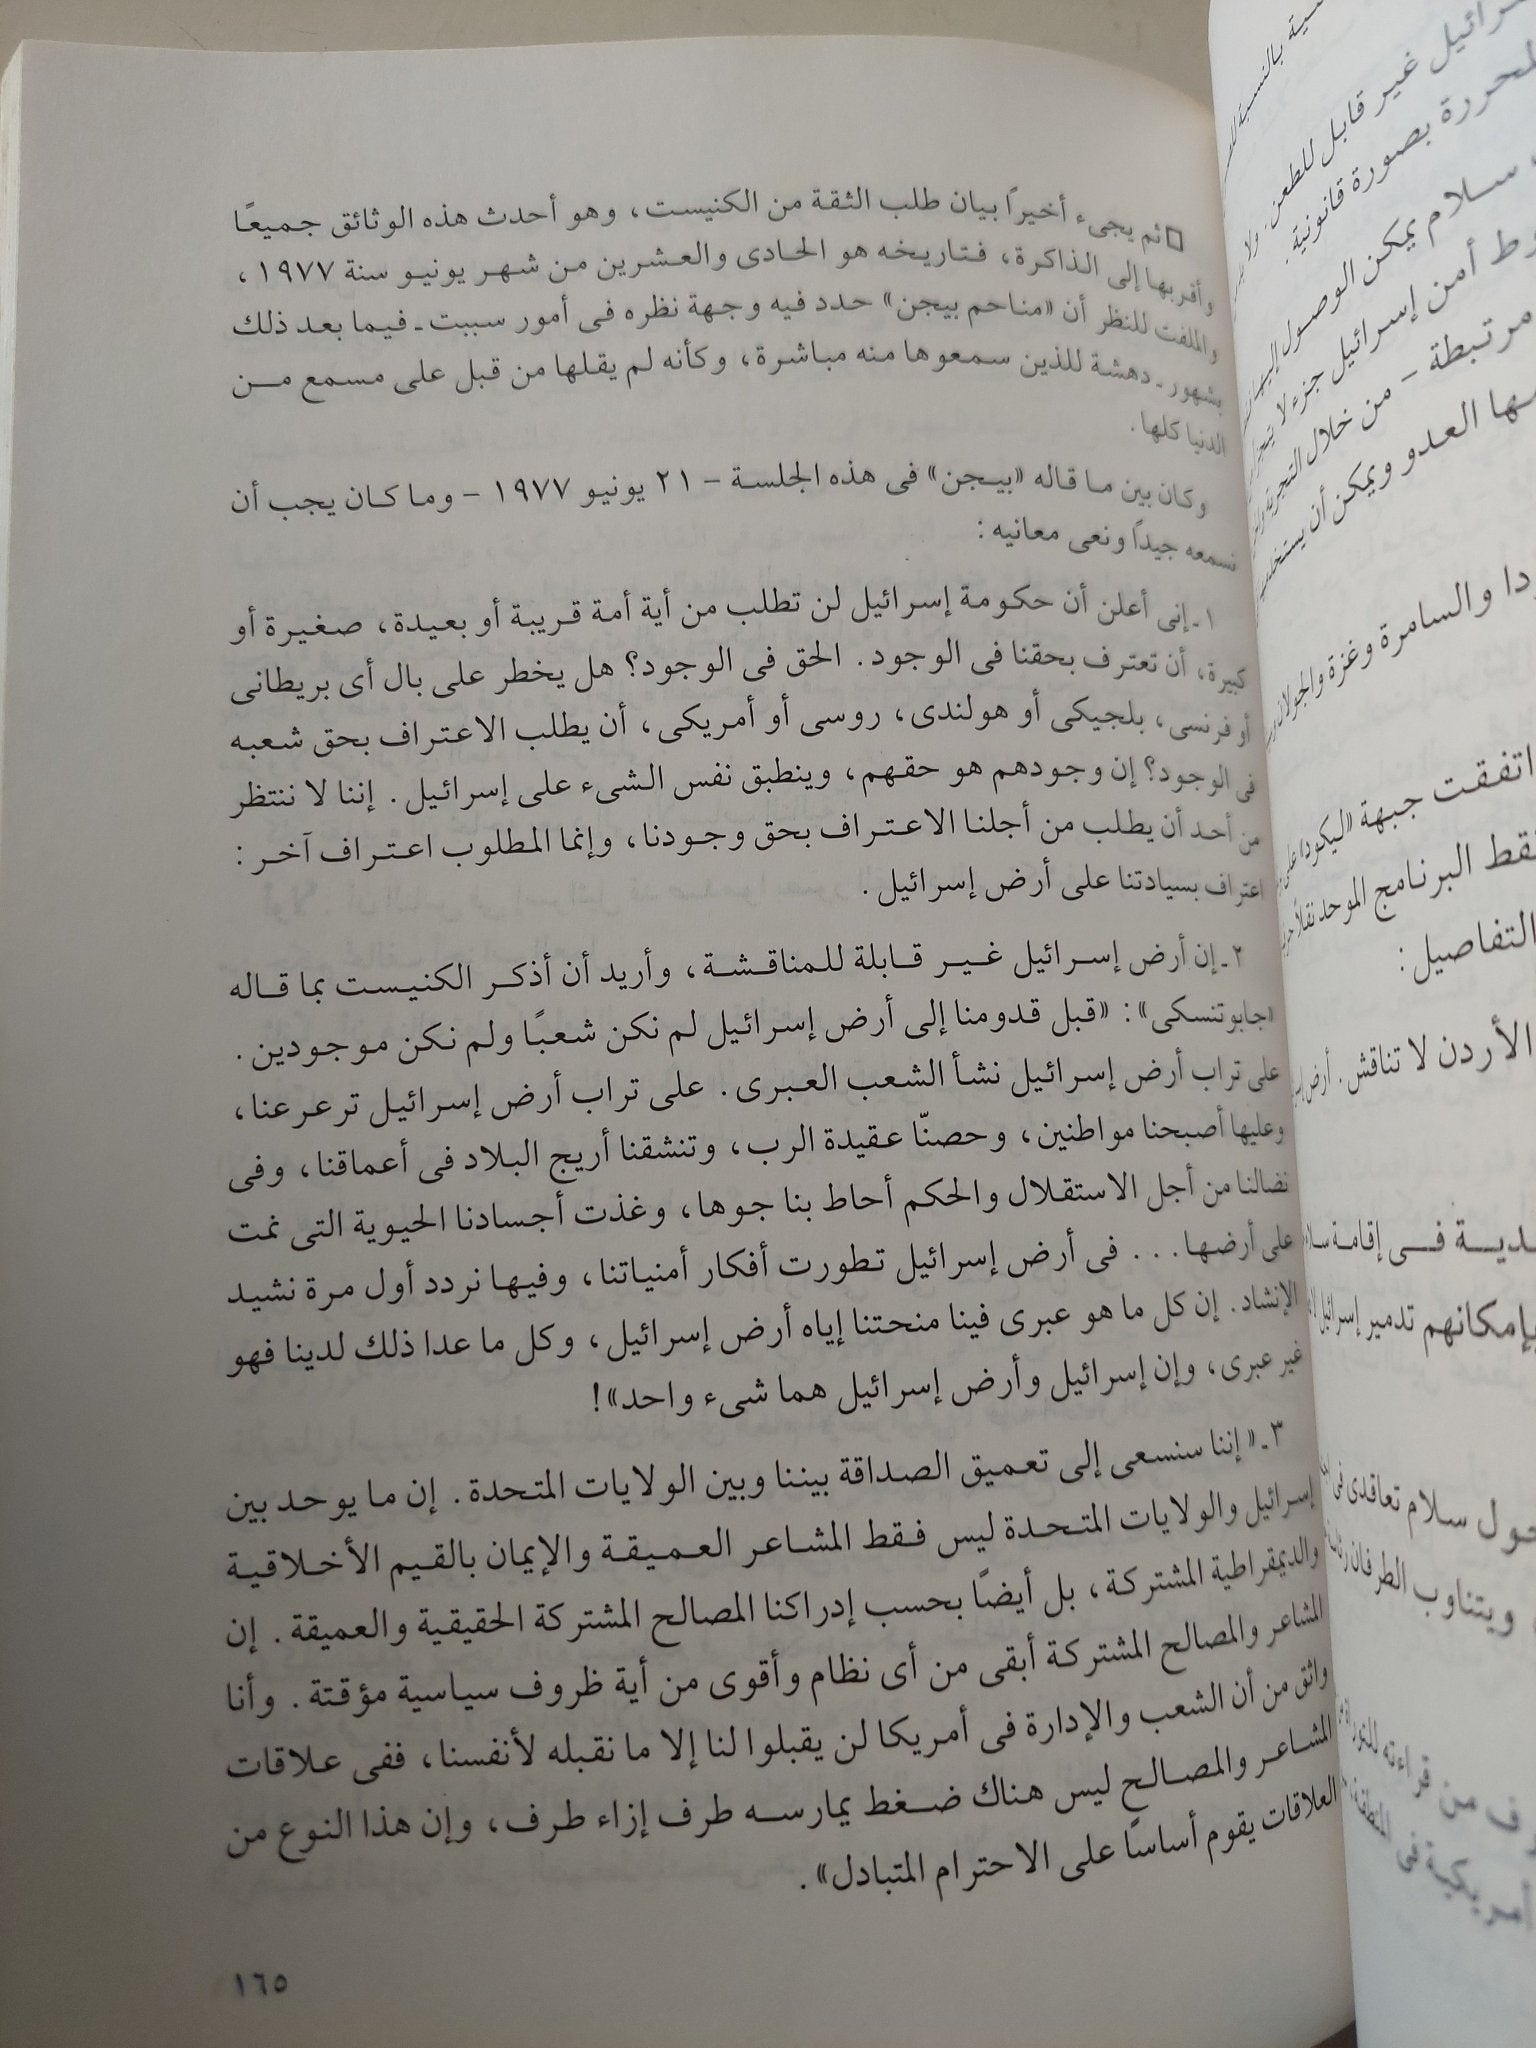 □ ثم يجىء أخيراً بيان طلب الثقة من الكنيست، وهو أحدث هذه الوثائق جميعًا
وأقربها إلى الذاكرة، فتاريخه هو الحادى والعشرين من شهر يونيو سنة ١٩٧٧،
والملفت للنظر أن «مناحم بيجن» حدد فيه وجهة نظره فى أمور سببت ـ فيما بعد ذلك
بشهور ـ دهشة للذين سمعوها منه مباشرة، وكأنه لم يقلها من قبل على مسمع من
الدنيا كلها.
وكان بين ما قاله «بيجن» فى هذه الجلسة – ٢١ يونيو ١٩٧٧ – وما كان يجب أن
نسمعه جيداً ونعى معانيه:
١ ـ إنى أعلن أن حكومة إسرائيل لن تطلب من أية أمة قريبة أو بعيدة، صغيرة أو
كبيرة، أن تعترف بحقنا فى الوجود. الحق فى الوجود؟ هل يخطر على بال أى بريطانى
أو فرنسى، بلجيكى أو هولندى، روسى أو أمريكى، أن يطلب الاعتراف بحق شعبه
فى الوجود؟ إن وجودهم هو حقهم، وينطبق نفس الشىء على إسرائيل. إننا لا ننتظر
من أحد أن يطلب من أجلنا الاعتراف بحق وجودنا، وإنما المطلوب اعتراف آخر:
اعتراف بسيادتنا على أرض إسرائيل.
٢ ـ إن أرض إسرائيل غير قابلة للمناقشة، وأريد أن أذكر الكنيست بما قاله
«جابوتنسكى»: «قبل قدومنا إلى أرض إسرائيل لم نكن شعبًا ولم نكن موجودين.
على تراب أرض إسرائيل نشأ الشعب العبرى. على تراب أرض إسرائيل ترعرعنا،
وعليها أصبحنا مواطنين، وحصنّا عقيدة الرب، وتنشقنا أريج البلاد فى أعماقنا، وفى
نضالنا من أجل الاستقلال والحكم أحاط بنا جوها، وغذت أجسادنا الحيوية التى نمت
على أرضها... فى أرض إسرائيل تطورت أفكار أمنياتنا، وفيها نردد أول مرة نشيد
الإنشاد. إن كل ما هو عبرى فينا منحتنا إياه أرض إسرائيل، وكل ما عدا ذلك لدينا فهو
غير عبرى، وإن إسرائيل وأرض إسرائيل هما شىء واحد»!
٣ ـ « إننا سنسعى إلى تعميق الصداقة بيننا وبين الولايات المتحدة. إن ما يوحد بين
إسرائيل والولايات المتحدة ليس فقط المشاعر العميقة والإيمان بالقيم الأخلاقية
والديمقراطية المشتركة، بل أيضًا بحسب إدراكنا المصالح المشتركة الحقيقية والعميقة. إن
المشاعر والمصالح المشتركة أبقى من أى نظام وأقوى من أية ظروف سياسية مؤقتة. وأنا
واثق من أن الشعب والإدارة فى أمريكا لن يقبلوا لنا إلا ما نقبله لأنفسنا، ففى علاقات
المشاعر والمصالح ليس هناك ضغط يمارسه طرف إزاء طرف، وإن هذا النوع من
العلاقات يقوم أساسًا على الاحترام المتبادل».
١٦٥
بالنسبة
غير قابل للطعن. ولا
بصورة قانونية.
سلام يمكن الوصول إليه
أمن إسرائيل جزء لا
مرتبطة – من خلال التجربة
العدو ويمكن أن
والسامرة وغزة والجولان
اتفقت جبهة «ليكود» على
البرنامج الموحد نقلاً
التفاصيل:
الأردن لا تناقش. أرض
فى إقامة
بإمكانهم تدمير إسرائيل
سلام تعاقدى فى
ويتناوب الطرفان
من قراءته
فى